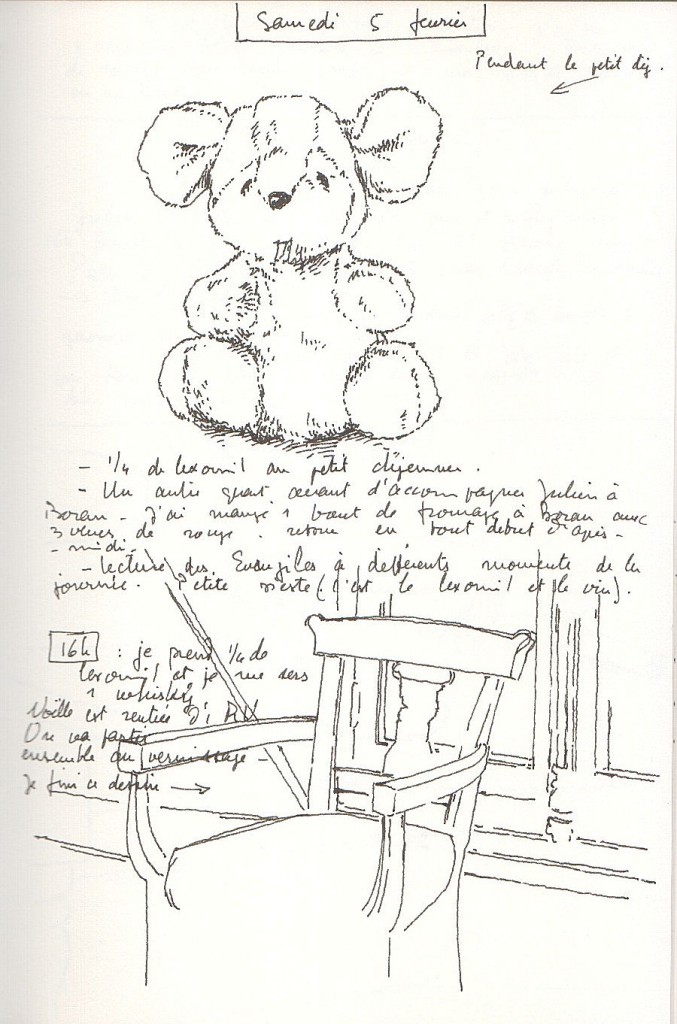 Samedi 5 février
Pendant le petit déj.
- 1/4 de lexomil au petit déjeuner.
- Un autre quart avant d'accompagner Julien à
Boran - J'ai mangé 1 bout de fromage à Boran avec
3 verres de rouge. retour en tout début d'après-
- midi.
- Lecture des Evangiles à différents moments de la
journée. Petite sieste (c'est le lexomil et le vin).
16h : je prend 1/4 de
lexomil et je me sers
1 whisky
Noëlle est rentrée d'
On va partir
ensemble au vernissage -
Je fini ce dessin →